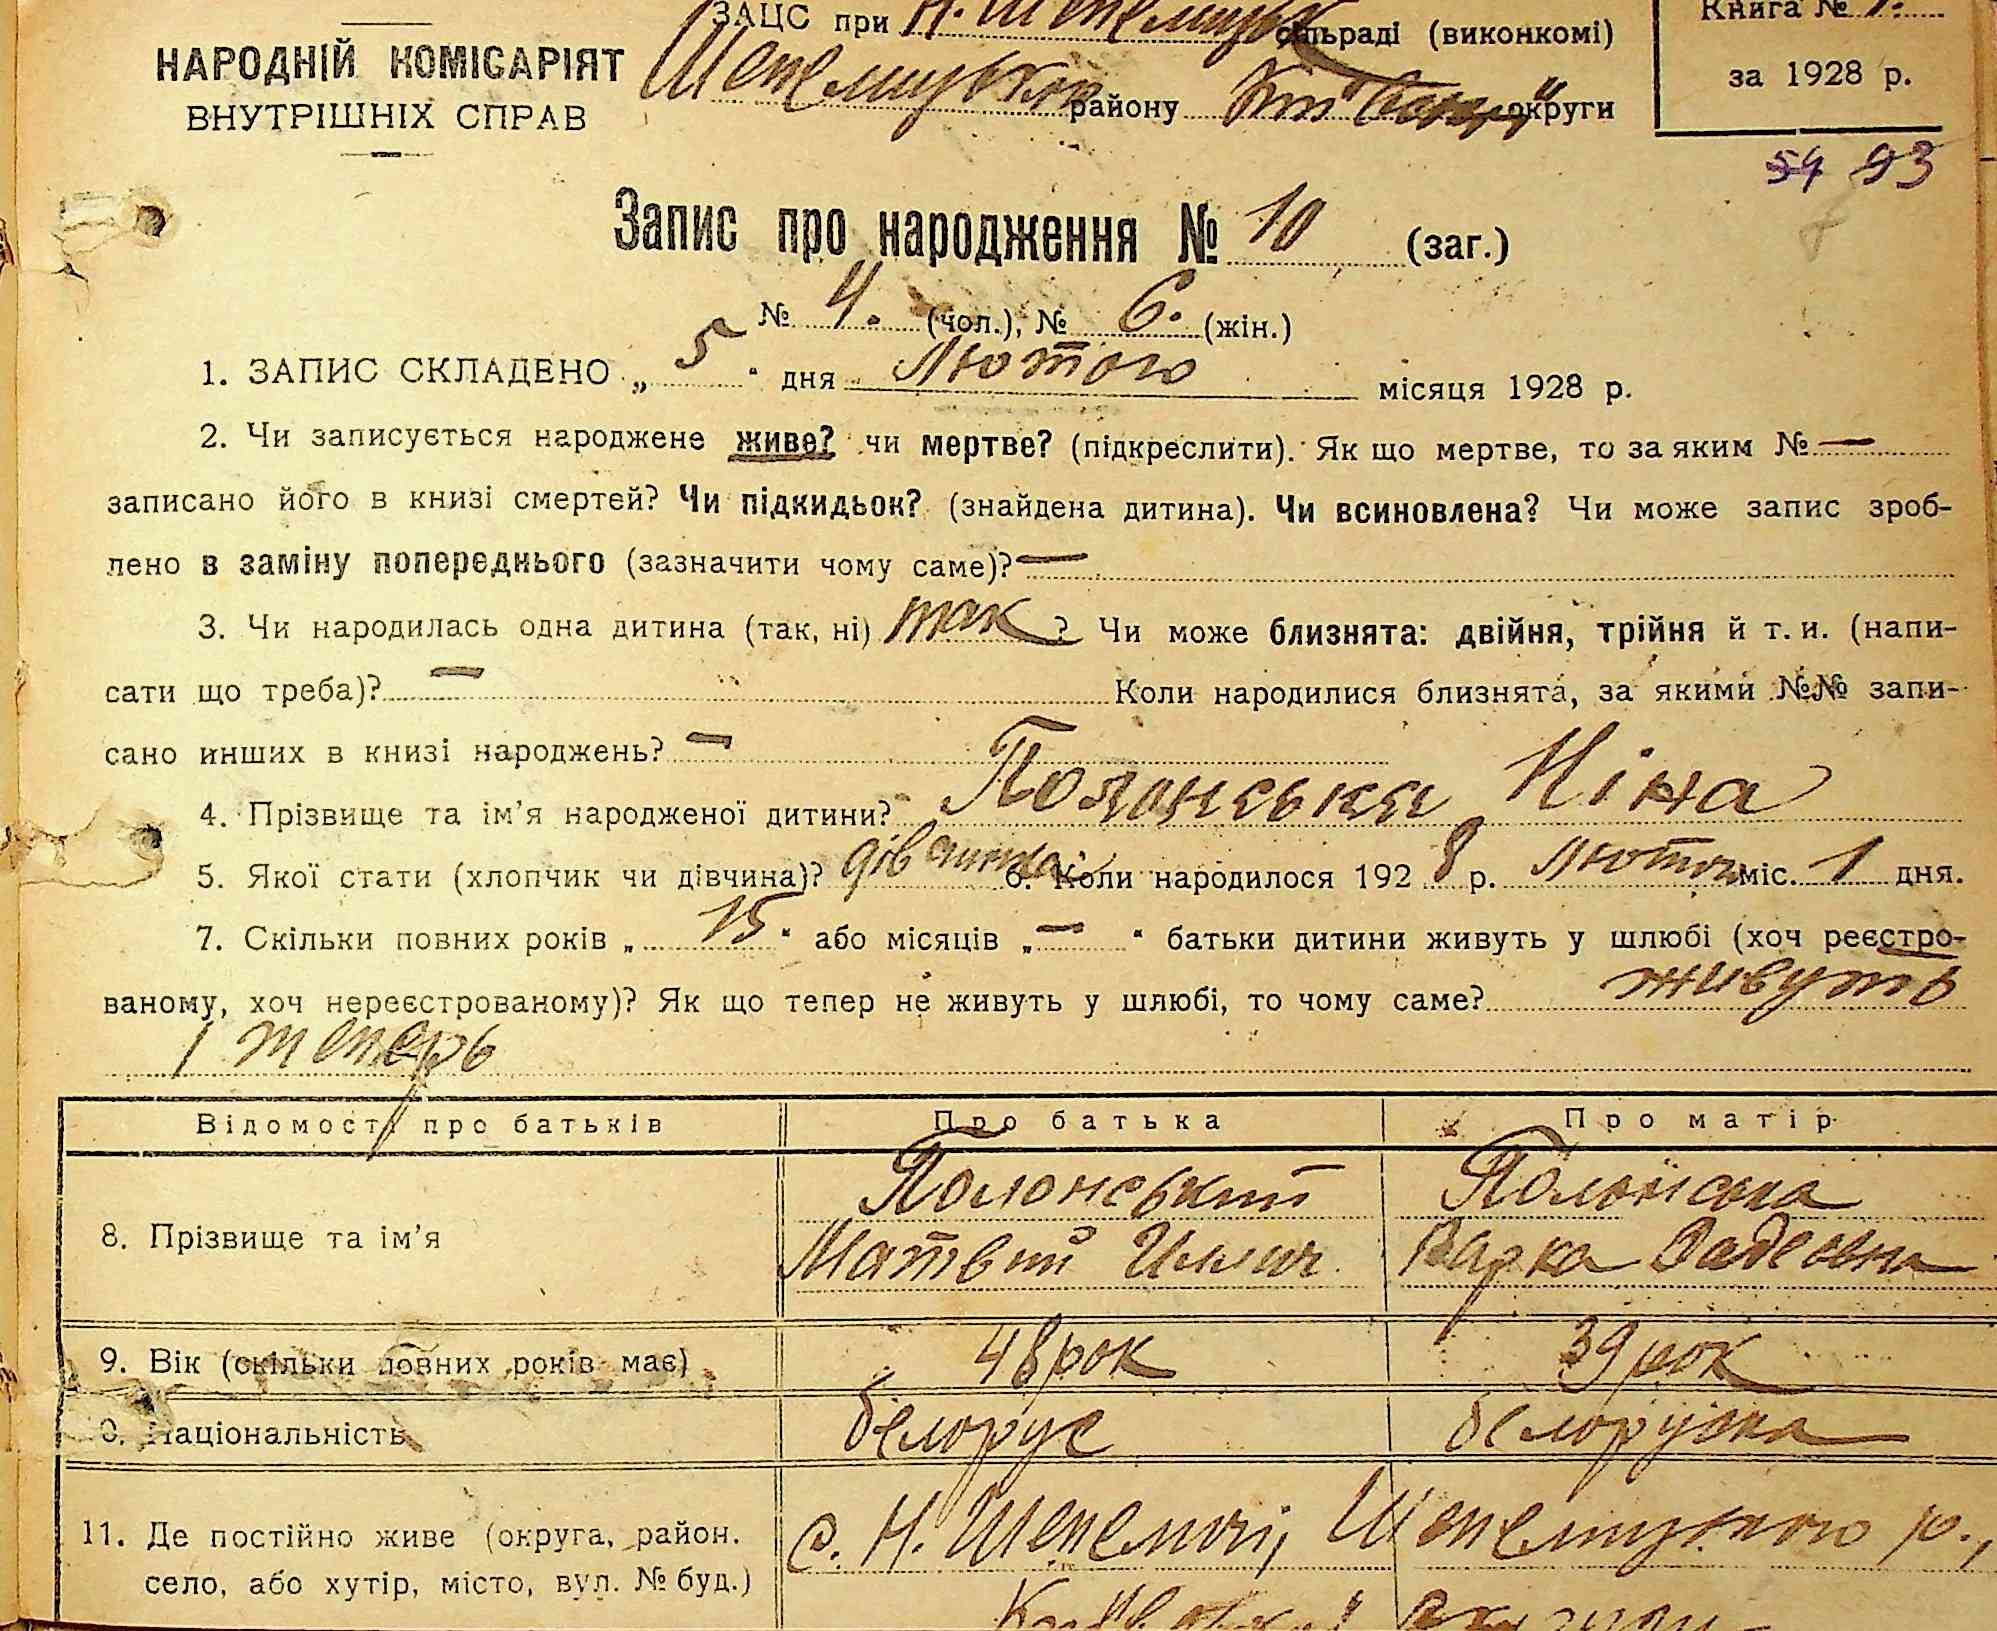 ЗАЦС при Н. Шепелицькій сільраді (виконкомі)
Книга № 1.
НАРОДНІЙ КОМІСАРІЯТ
Шепелицького району округи
за 1928 р.
ВНУТРІШНІХ СПРАВ
54 93
Запис про народження № 10 (заг.)
№ 4. (чол.), № 6. (жін.)
1. ЗАПИС СКЛАДЕНО „ 5 " дня Лютого місяця 1928 р.
2. Чи записується народжене живе? чи мертве? (підкреслити). Як що мертве, то за яким № —
записано його в книзі смертей? Чи підкидьок? (знайдена дитина). Чи всиновлена? Чи може запис зроб-
лено в заміну попереднього (зазначити чому саме)? —
3. Чи народилась одна дитина (так, ні) так ? Чи може близнята: двійня, трійня й т. и. (напи-
сати що треба)? — Коли народилися близнята, за якими №№ запи-
сано инших в книзі народжень? —
4. Прізвище та ім'я народженої дитини? Полонська Ніна
5. Якої стати (хлопчик чи дівчина)? дівчинка 6. Коли народилося 1928 р. Лютого міс. 1 дня.
7. Скільки повних років „ 15 " або місяців „ — " батьки дитини живуть у шлюбі (хоч реєстро-
ваному, хоч нереєстрованому)? Як що тепер не живуть у шлюбі, то чому саме? живуть
і теперь
Відомості про батьків Про батька Про матір
Полонський Полонська
8. Прізвище та ім'я Матвій Ілліч Варка
9. Вік (скільки повних років має) 48 рок 39 рок
0. Національність белорус белоруска
11. Де постійно живе (округа, район. с. Н. Шепеличі, Шепелицького р.,
село, або хутір, місто, вул. № буд.)